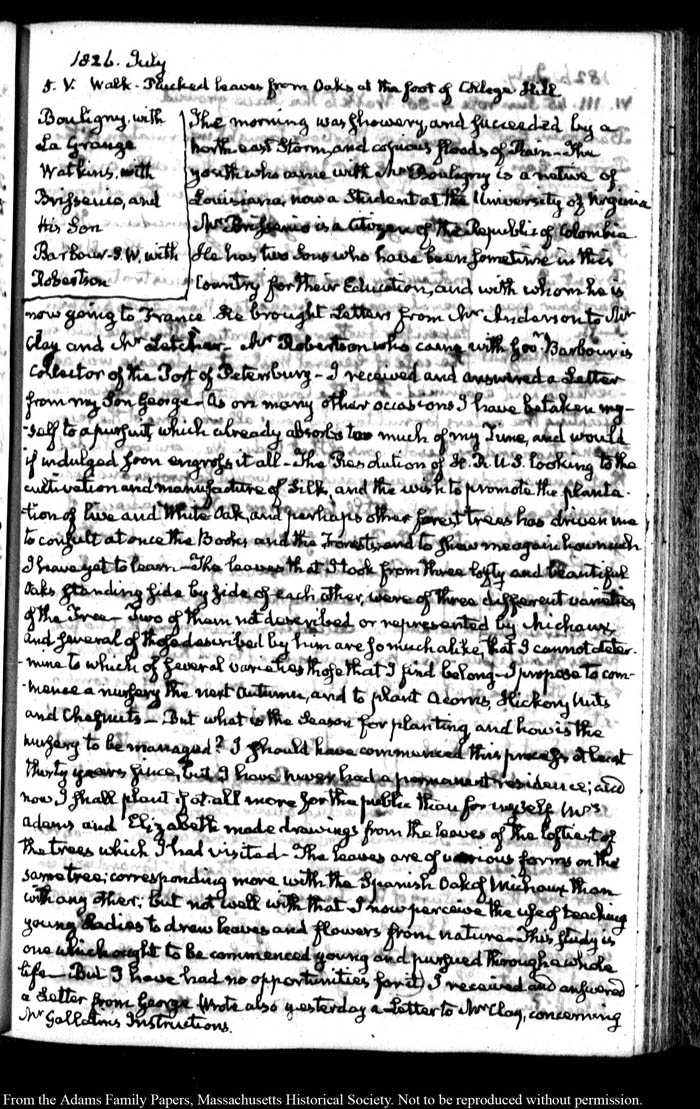 1826. July
5. V. Walk - Plucked leaves from Oaks at the foot of College Hill
Bouligny, with
La Grange
Watkins, with
Brissenio, and
His Son
Barbour. S.W. with
Robertson
The morning was showery, and succeeded by a
north east Storm, and copious floods of Rain - The
youth who came with Mr Bouligny is a native of
Louisiana, now a Student at the University of Virginia
Mr Brissenio is a Citizen of the Republic of Colombia
He has two Sons who have been sometime in this
Country for their Education, and with whom he is
now going to France. He brought Letters from Mr Anderson to Mr
Clay and Mr Letcher - Mr Robertson who came with Govr Barbour is
Collector of the Port of Petersburg - I received and answered a Letter
from my Son George - As on many other occasions I have betaken my-
-self to a pursuit, which already absorbs too much of my Time, and would
if indulged soon engross it all - The Resolution of H. R. U.S. looking to the
cultivation and manufacture of Silk, and the wish to promote the planta-
-tion of live and White Oak, and perhaps other forest trees has driven me
to consult at once the Books and the Forests, and to shew me again how much
I have yet to learn - The leaves that I took from three lofty and beautiful
Oaks, standing side by side of each other, were of three different varieties
of the Tree - Two of them not described or represented by Michaux,
and several of those described by him are so much alike, that I cannot deter-
-mine to which of several varieties those that I find belong - I propose to com-
-mence a nursery the next Autumn, and to plant Acorns, Hickory Nuts
and Chesnuts - But what is the Season for planting, and how is the
nursery to be managed? I should have commenced this process at least
thirty years since, but I have never had a permanent residence; and
now I shall plant if at all more for the public than for myself. Mrs
Adams and Elizabeth made drawings from the leaves of the loftiest of
the trees which I had visited - The leaves are of various forms on the
same tree; corresponding more with the Spanish Oak of Michaux than
with any other; but not well with that - I now perceive the use of teaching
young Ladies to draw leaves and flowers from nature - This study is
one which ought to be commenced young and pursued through a whole
life - But I have had no opportunities for it. I received and answered
a Letter from George. Wrote also yesterday a Letter to Mr Clay, concerning
Mr Gallatin's Instructions.
From the Adams Family Papers, Massachusetts Historical Society. Not to be reproduced without permission.